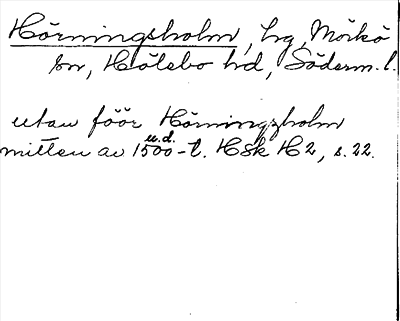 Hörningsholm, hg, Mörkö
sn, Hölebo hd, Söderm. l.
utan föör Hörningzholm
u.d.
mitten av 1500-t. HSk H2, s. 22.